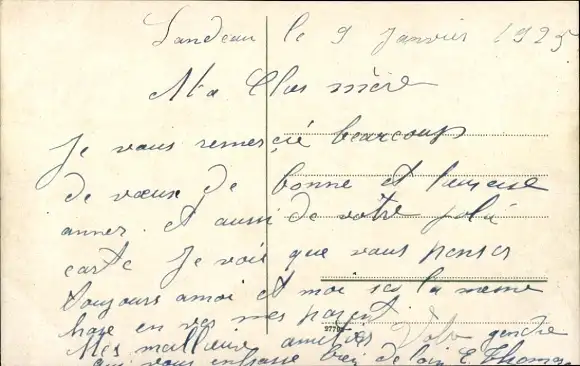 Landau le 9 Janvier 1925
Ma Cher mère
Je vous remerçie beaucoup
de vœux de bonne et
anner. et aussi de votre joli
carte Je vois que vous penser
toujours a moi et moi la meme
en mes parent.
97795
Mes meilleure amitiés Votre gendre
qui vous enbrasse bien de loin E. Thomas